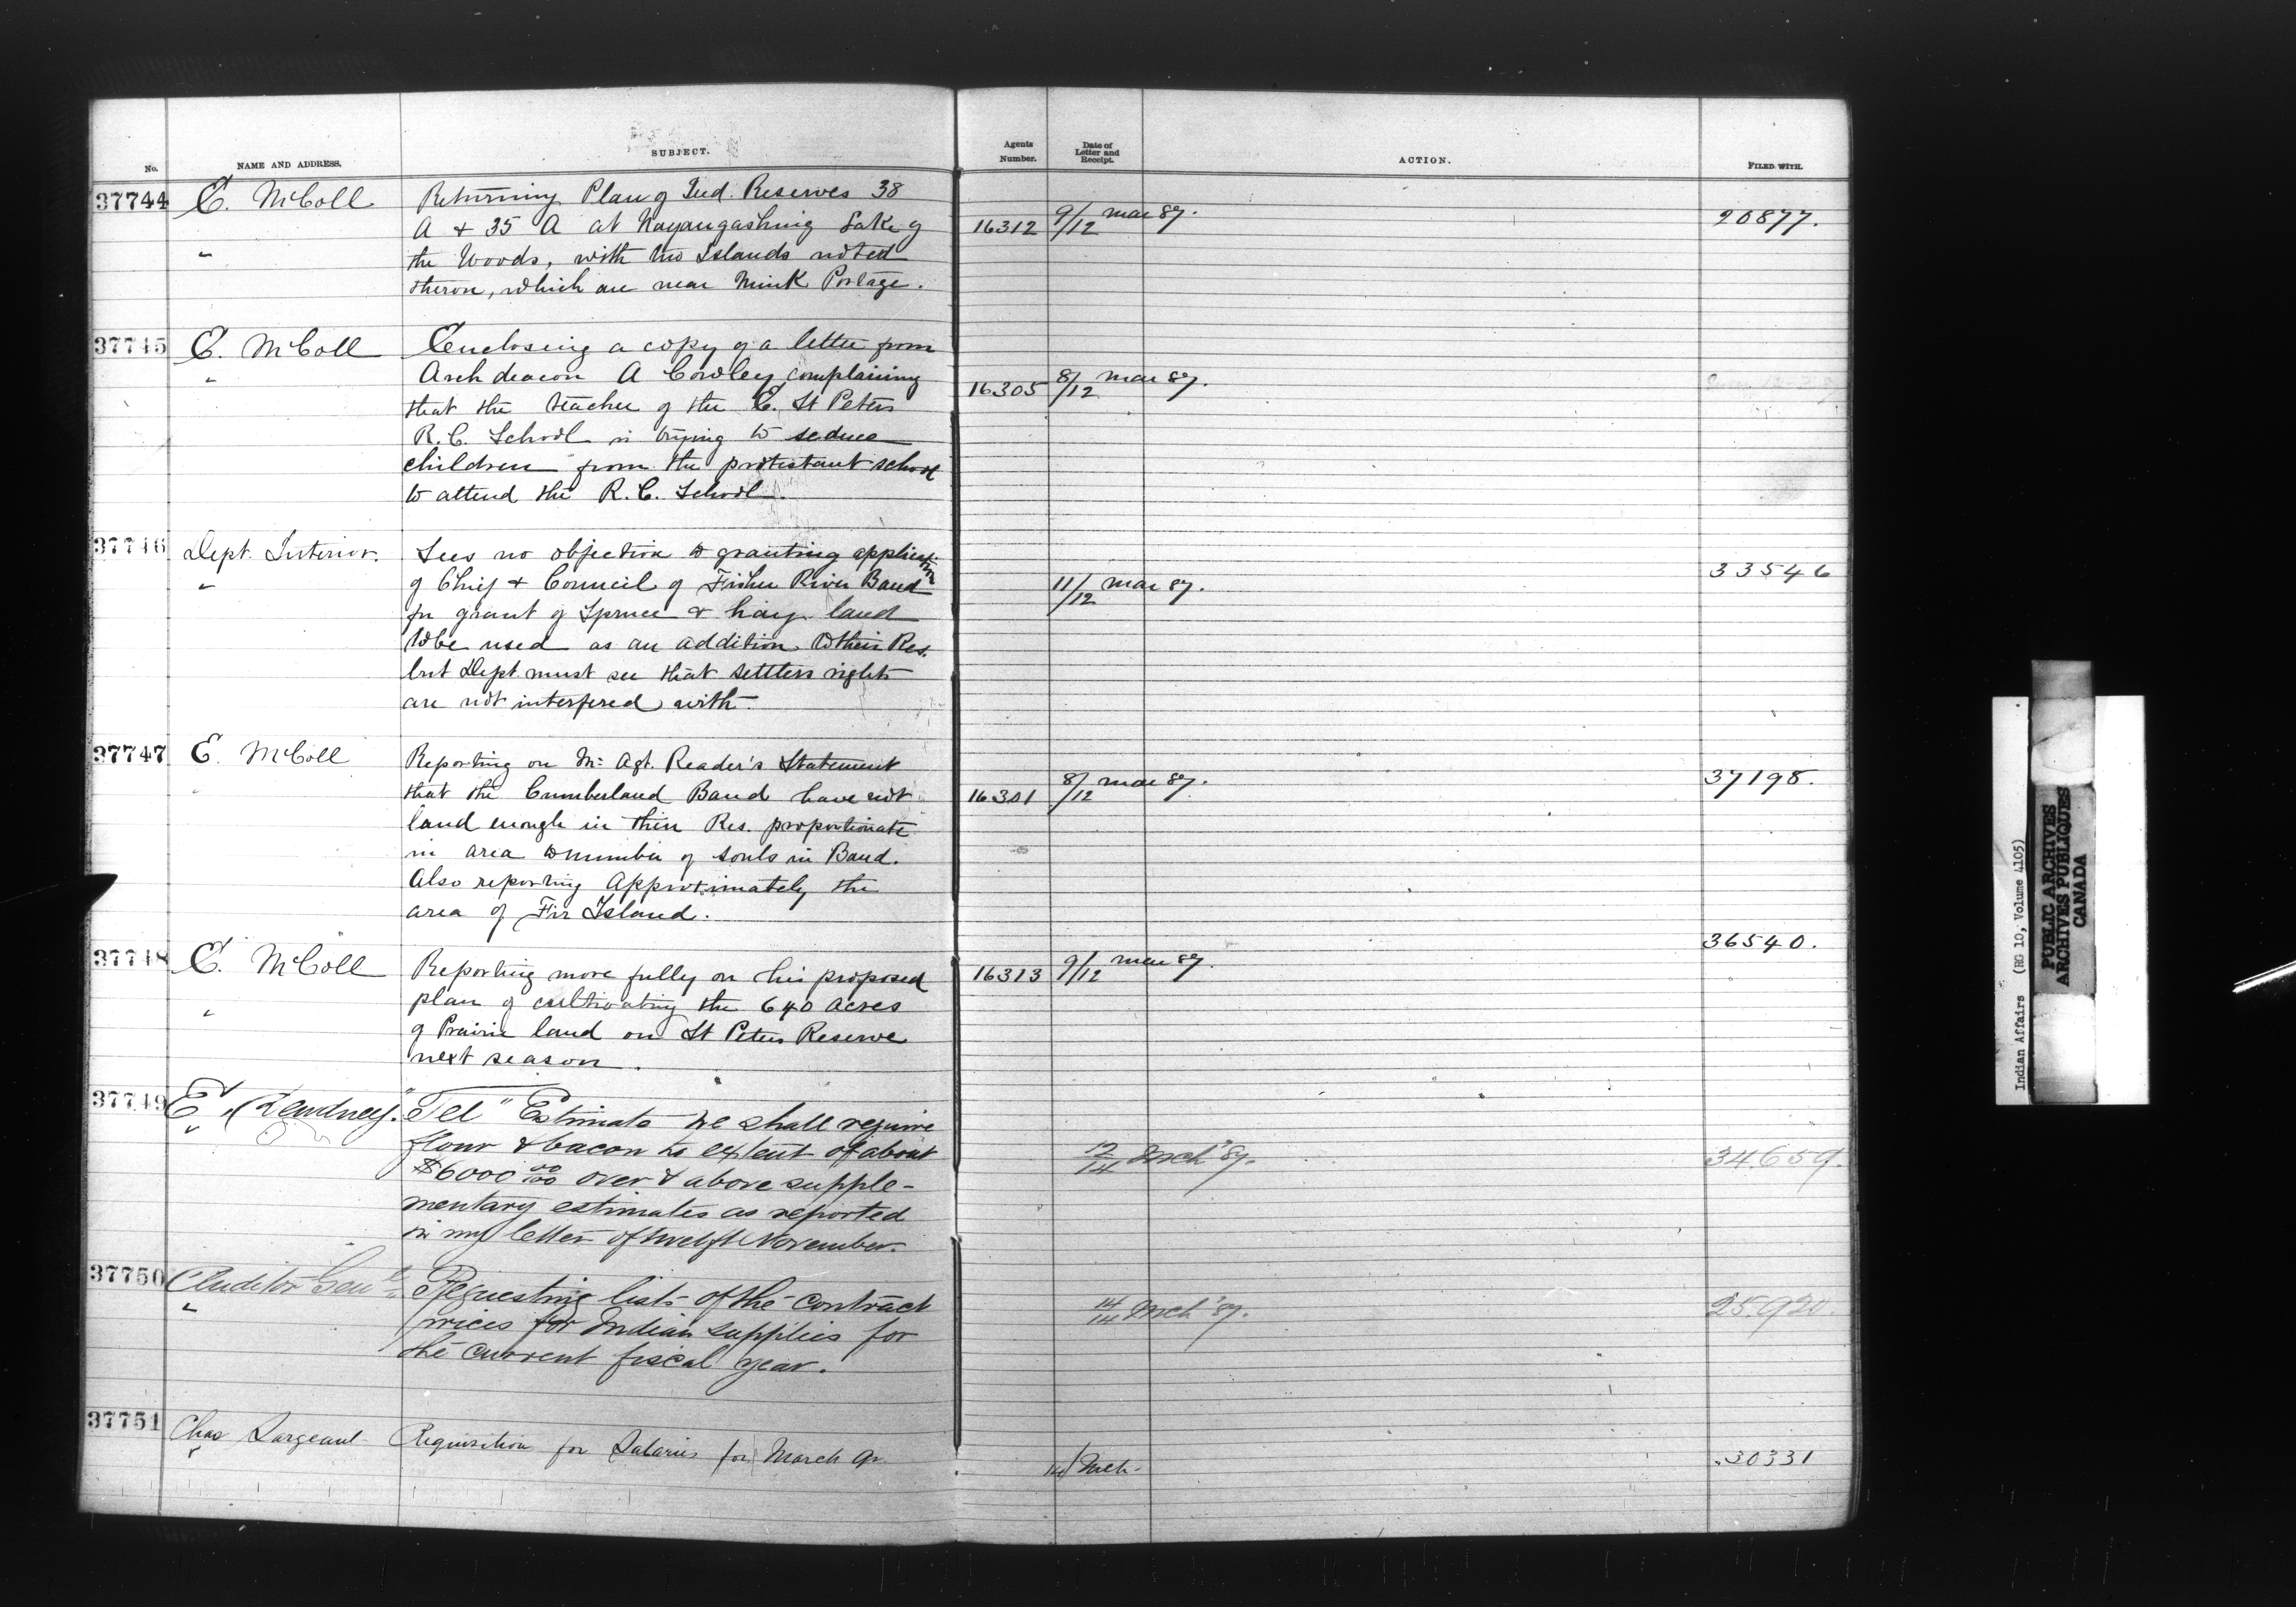 No. NAME AND ADDRESS. SUBJECT. Agents Number. Date of Letter and Receipt. ACTION. FILED WITH.
37744 E. McColl Returning Plan of Ind. Reserves 38
A + 35 A at Nayaugashing Lake of 16312 9/12 Mar 87. 20877.
" the Woods, with two Islands noted
theron, which are near Mink Portage.
37745 E. McColl Enclosing a copy of a letter from
" Archdeacon A Cowley complaining 16305 8/12 Mar 87.
that the teacher of the E. St Peters
R.C. School is trying to seduce
children from the protestant school
to attend the R.C. School.
37746 Dept. Interior. Sees no objection to granting application 33546
" of Chief + Council of Fisher River Band 11/12 Mar 87.
for grant of Spruce & hay land
to be used as an addition to their Res.
but Dept. must see that settlers rights
are not interfered with.
37747 E. McColl Reporting on Mr Agt. Reader's Statement 37198.
" that the Cumberland Band have not 16301 8/12 Mar 87.
land enough in their Res. proportionate
in area to number of souls in Band.
Also reporting approximately the
area of Fir Island.
36540.
37748 E. McColl Reporting more fully on his proposed 16313 9/12 Mar 87.
" plan of cultivating the 640 acres
of Prairie land on St Peters Reserve
next season.
37749 E. Dewdney. "Tel" Estimate we shall require
" flour & bacon to extent of about 12/14 Mch '87. 34659.
$6000 00/00 over & above supple-
mentary estimates as reported
in my letter of twelft November.
37750 Auditor Genl. Requesting lists of the contract 14/14 Mch '87. 25920.
" prices for Indian supplies for
the current fiscal year.
37751 Chas Sargeant Requisition for Salaries for March qr 30331
" 14/ Mch.
Indian Affairs (RG 10, Volume 4105)
PUBLIC ARCHIVES
ARCHIVES PUBLIQUES
CANADA